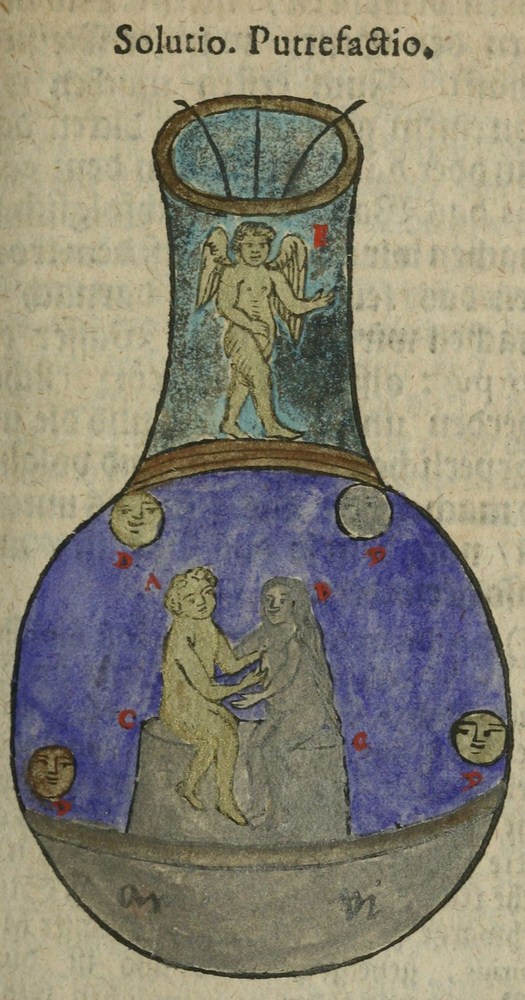 Solutio. Putrefactio.
E
D D
A B
C C
D D
ar vi